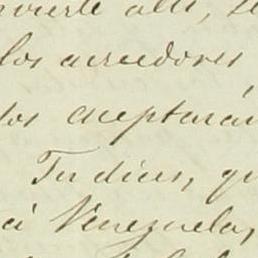 allí,
los acreedores
aceptarán
Tu dices, qu
á Venezuela,